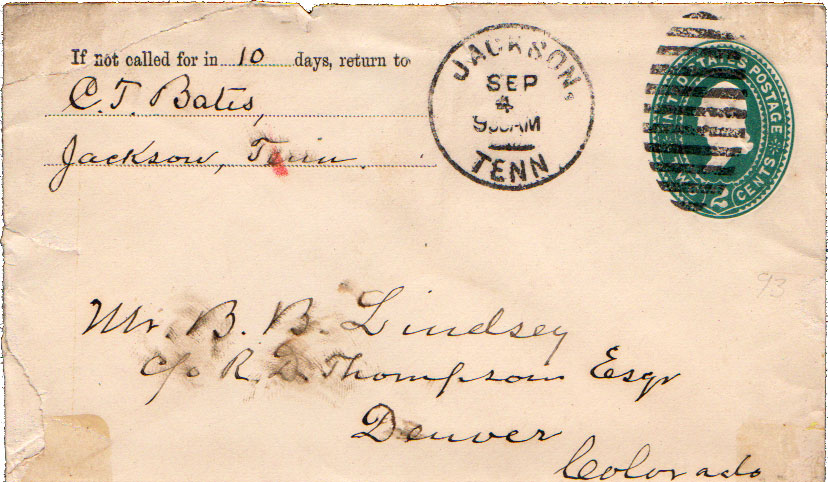 If not called for in 10 days, return to
C. T. Bates,
Jackson, Tenn.
JACKSON,
SEP
4
AM
TENN
UNITED STATES POSTAGE
2 CENTS.
93
Mr. B. B. Lindsey
c/o R. D. Thompson Esqr
Denver
Colorado